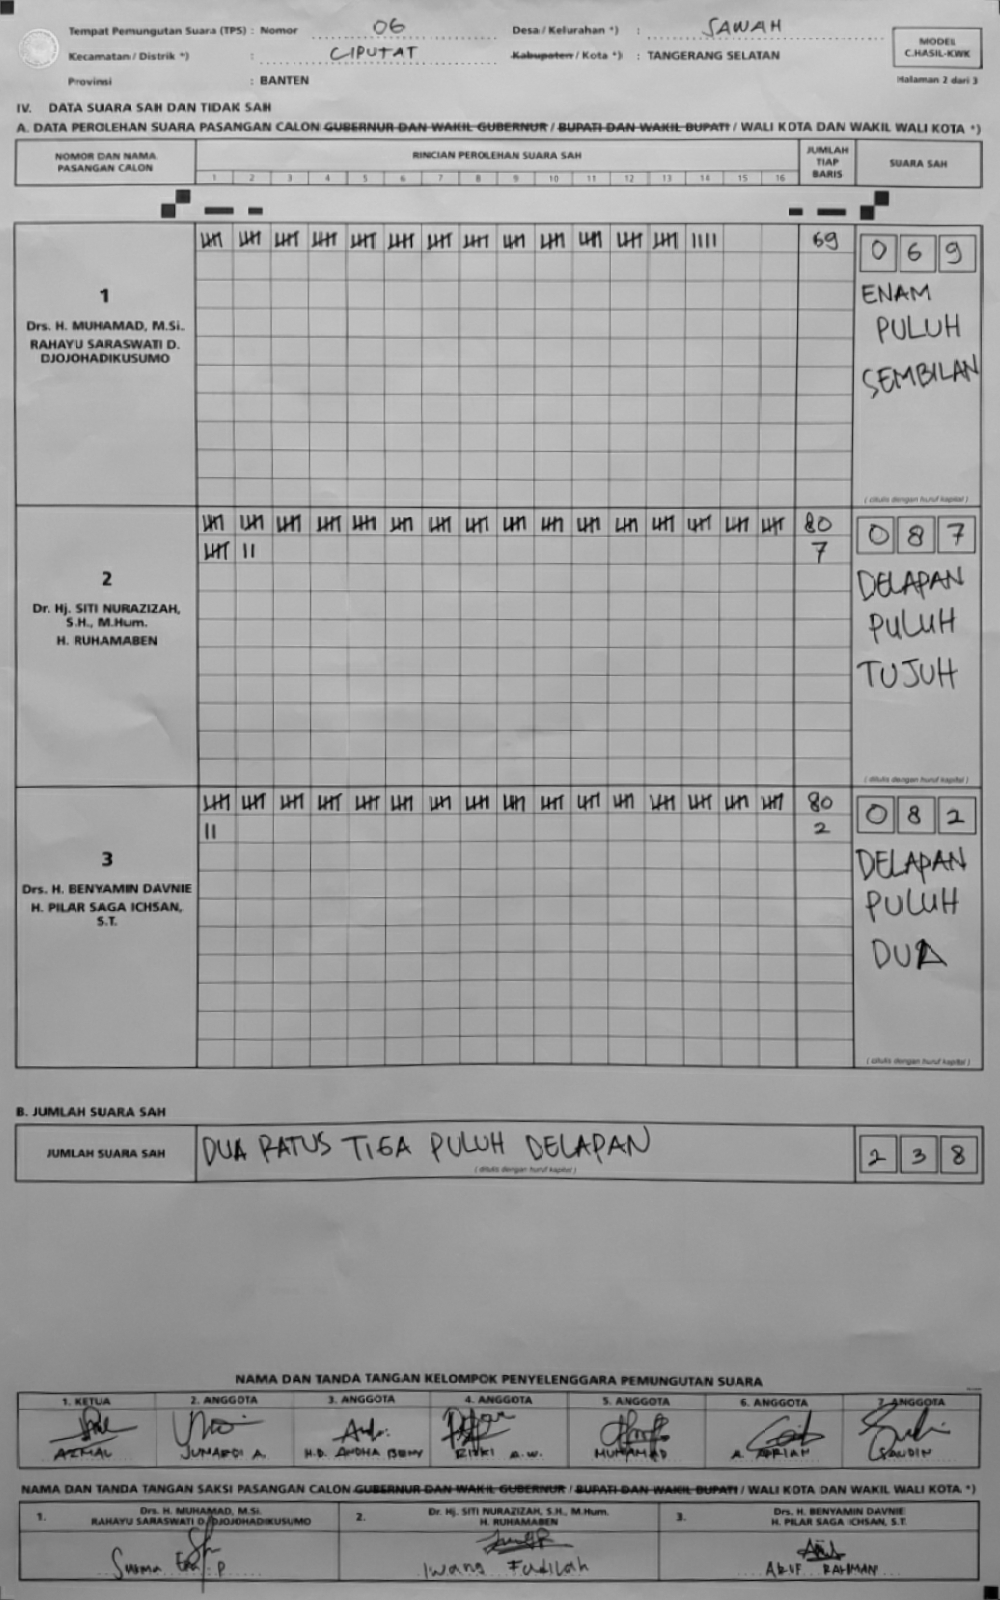 Tempat Pemungutan Suara (TPS) : Nomor 06 Desa / Kelurahan *) : SAWAH
Kecamatan / Distrik *) : CIPUTAT Kabupaten / Kota *) : TANGERANG SELATAN
Provinsi : BANTEN
MODEL
C.HASIL-KWK
Halaman 2 dari 3
IV. DATA SUARA SAH DAN TIDAK SAH
A. DATA PEROLEHAN SUARA PASANGAN CALON GUBERNUR DAN WAKIL GUBERNUR / BUPATI DAN WAKIL BUPATI / WALI KOTA DAN WAKIL WALI KOTA *)
NOMOR DAN NAMA
PASANGAN CALON
RINCIAN PEROLEHAN SUARA SAH
1 2 3 4 5 6 7 8 9 10 11 12 13 14 15 16
JUMLAH
TIAP
BARIS
SUARA SAH
1
Drs. H. MUHAMAD, M.Si.
RAHAYU SARASWATI D.
DJOJOHADIKUSUMO
69
0 6 9
ENAM
PULUH
SEMBILAN
(ditulis dengan huruf kapital)
2
Dr. Hj. SITI NURAZIZAH,
S.H., M.Hum.
H. RUHAMABEN
80
7
0 8 7
DELAPAN
PULUH
TUJUH
(ditulis dengan huruf kapital)
3
Drs. H. BENYAMIN DAVNIE
H. PILAR SAGA ICHSAN,
S.T.
80
2
0 8 2
DELAPAN
PULUH
DUA
(ditulis dengan huruf kapital)
B. JUMLAH SUARA SAH
JUMLAH SUARA SAH
DUA RATUS TIGA PULUH DELAPAN
(ditulis dengan huruf kapital)
2 3 8
NAMA DAN TANDA TANGAN KELOMPOK PENYELENGGARA PEMUNGUTAN SUARA
1. KETUA 2. ANGGOTA 3. ANGGOTA 4. ANGGOTA 5. ANGGOTA 6. ANGGOTA 7. ANGGOTA
AZMAL JUNAEDI A. RIZKI A.W. MUHAMAD A. ADRIAN SAUDIN
NAMA DAN TANDA TANGAN SAKSI PASANGAN CALON GUBERNUR DAN WAKIL GUBERNUR / BUPATI DAN WAKIL BUPATI / WALI KOTA DAN WAKIL WALI KOTA *)
1. Drs. H. MUHAMAD, M.Si.
RAHAYU SARASWATI D. DJOJOHADIKUSUMO
2. Dr. Hj. SITI NURAZIZAH, S.H., M.Hum.
H. RUHAMABEN
Iwang Fadilah
3. Drs. H. BENYAMIN DAVNIE
H. PILAR SAGA ICHSAN, S.T.
ARIF RAHMAN